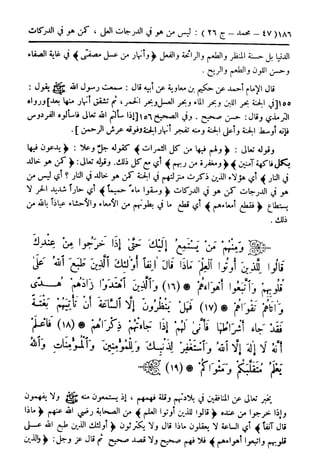 ١٨٦ (٤٧ – محمد – ج ٢٦) : ليس من هو في الدرجات العلى ، كمن هو في الدركات
الدنيا بل حسنة المنظر والطعم والرائحة والفعل ﴿وأنهار من عسل مصفّى﴾ في غاية الصفاء
وحسن اللون والطعم والريح .
قال الإمام أحمد عن حكيم بن معاوية عن أبيه قال : سمعت رسول الله ﷺ يقول :
١٥٥ [في الجنة بحر اللبن وبحر الماء وبحر العسل وبحر الخمر ، ثم تشقق أنهار منها بعد] ورواه
الترمذي وقال : حسن صحيح . وفي الصحيح ١٥٦ [إذا سألتم الله تعالى فاسألوه الفردوس
فإنه أوسط الجنة وأعلى الجنة ومنه تفجر أنهار الجنة وفوقه عرش الرحمن] .
وقوله تعالى : ﴿ولهم فيها من كل الثمرات﴾ كقوله جلّ وعلا : ﴿يدعون فيها
بكل فاكهة آمنين﴾ ﴿ومغفرة من ربهم﴾ أي مع كل ذلك. وقوله تعالى: ﴿كمن هو خالد
في النار﴾ أي هؤلاء الذين ذكرت منزلتهم في الجنة كمن هو خالد في النار ؟ أي ليس من
هو في الدرجات كمن هو في الدركات ﴿وسقوا ماءً حميماً﴾ أي حاراً شديد الحر لا
يستطاع ﴿فقطع أمعاءهم﴾ أي قطع ما في بطونهم من الأمعاء والأحشاء عياذاً بالله من
ذلك .
وَمِنْهُم مَّن يَسْتَمِعُ إِلَيْكَ حَتَّىٰ إِذَا خَرَجُوا مِنْ عِندِكَ
قَالُوا لِلَّذِينَ أُوتُوا الْعِلْمَ مَاذَا قَالَ آنِفًا أُولَٰئِكَ الَّذِينَ طَبَعَ اللَّهُ عَلَىٰ
قُلُوبِهِمْ وَاتَّبَعُوا أَهْوَاءَهُمْ * (١٦) وَالَّذِينَ اهْتَدَوْا زَادَهُمْ هُدًى
وَآتَاهُمْ تَقْوَاهُمْ * (١٧) فَهَلْ يَنظُرُونَ إِلَّا السَّاعَةَ أَن تَأْتِيَهُم بَغْتَةً
فَقَدْ جَاءَ أَشْرَاطُهَا فَأَنَّىٰ لَهُمْ إِذَا جَاءَتْهُمْ ذِكْرَاهُمْ * (١٨) فَاعْلَمْ
أَنَّهُ لَا إِلَٰهَ إِلَّا اللَّهُ وَاسْتَغْفِرْ لِذَنبِكَ وَلِلْمُؤْمِنِينَ وَالْمُؤْمِنَاتِ وَاللَّهُ
يَعْلَمُ مُتَقَلَّبَكُمْ وَمَثْوَاكُمْ * (١٩)
يخبر تعالى عن المنافقين في بلادتهم وقلة فهمهم ، إذ يستمعون منه ﷺ ولا يفهمون
وإذا خرجوا من عنده ﴿قالوا للذين أوتوا العلم﴾ من الصحابة رضي الله عنهم ﴿ماذا
قال آنفاً﴾ أي الساعة لا يعقلون ماذا قال ولا يكترثون ﴿أولئك الذين طبع الله على
قلوبهم واتبعوا أهواءهم﴾ فلا فهم صحيح ولا قصد صحيح ثم قال عز وجل: ﴿والذين